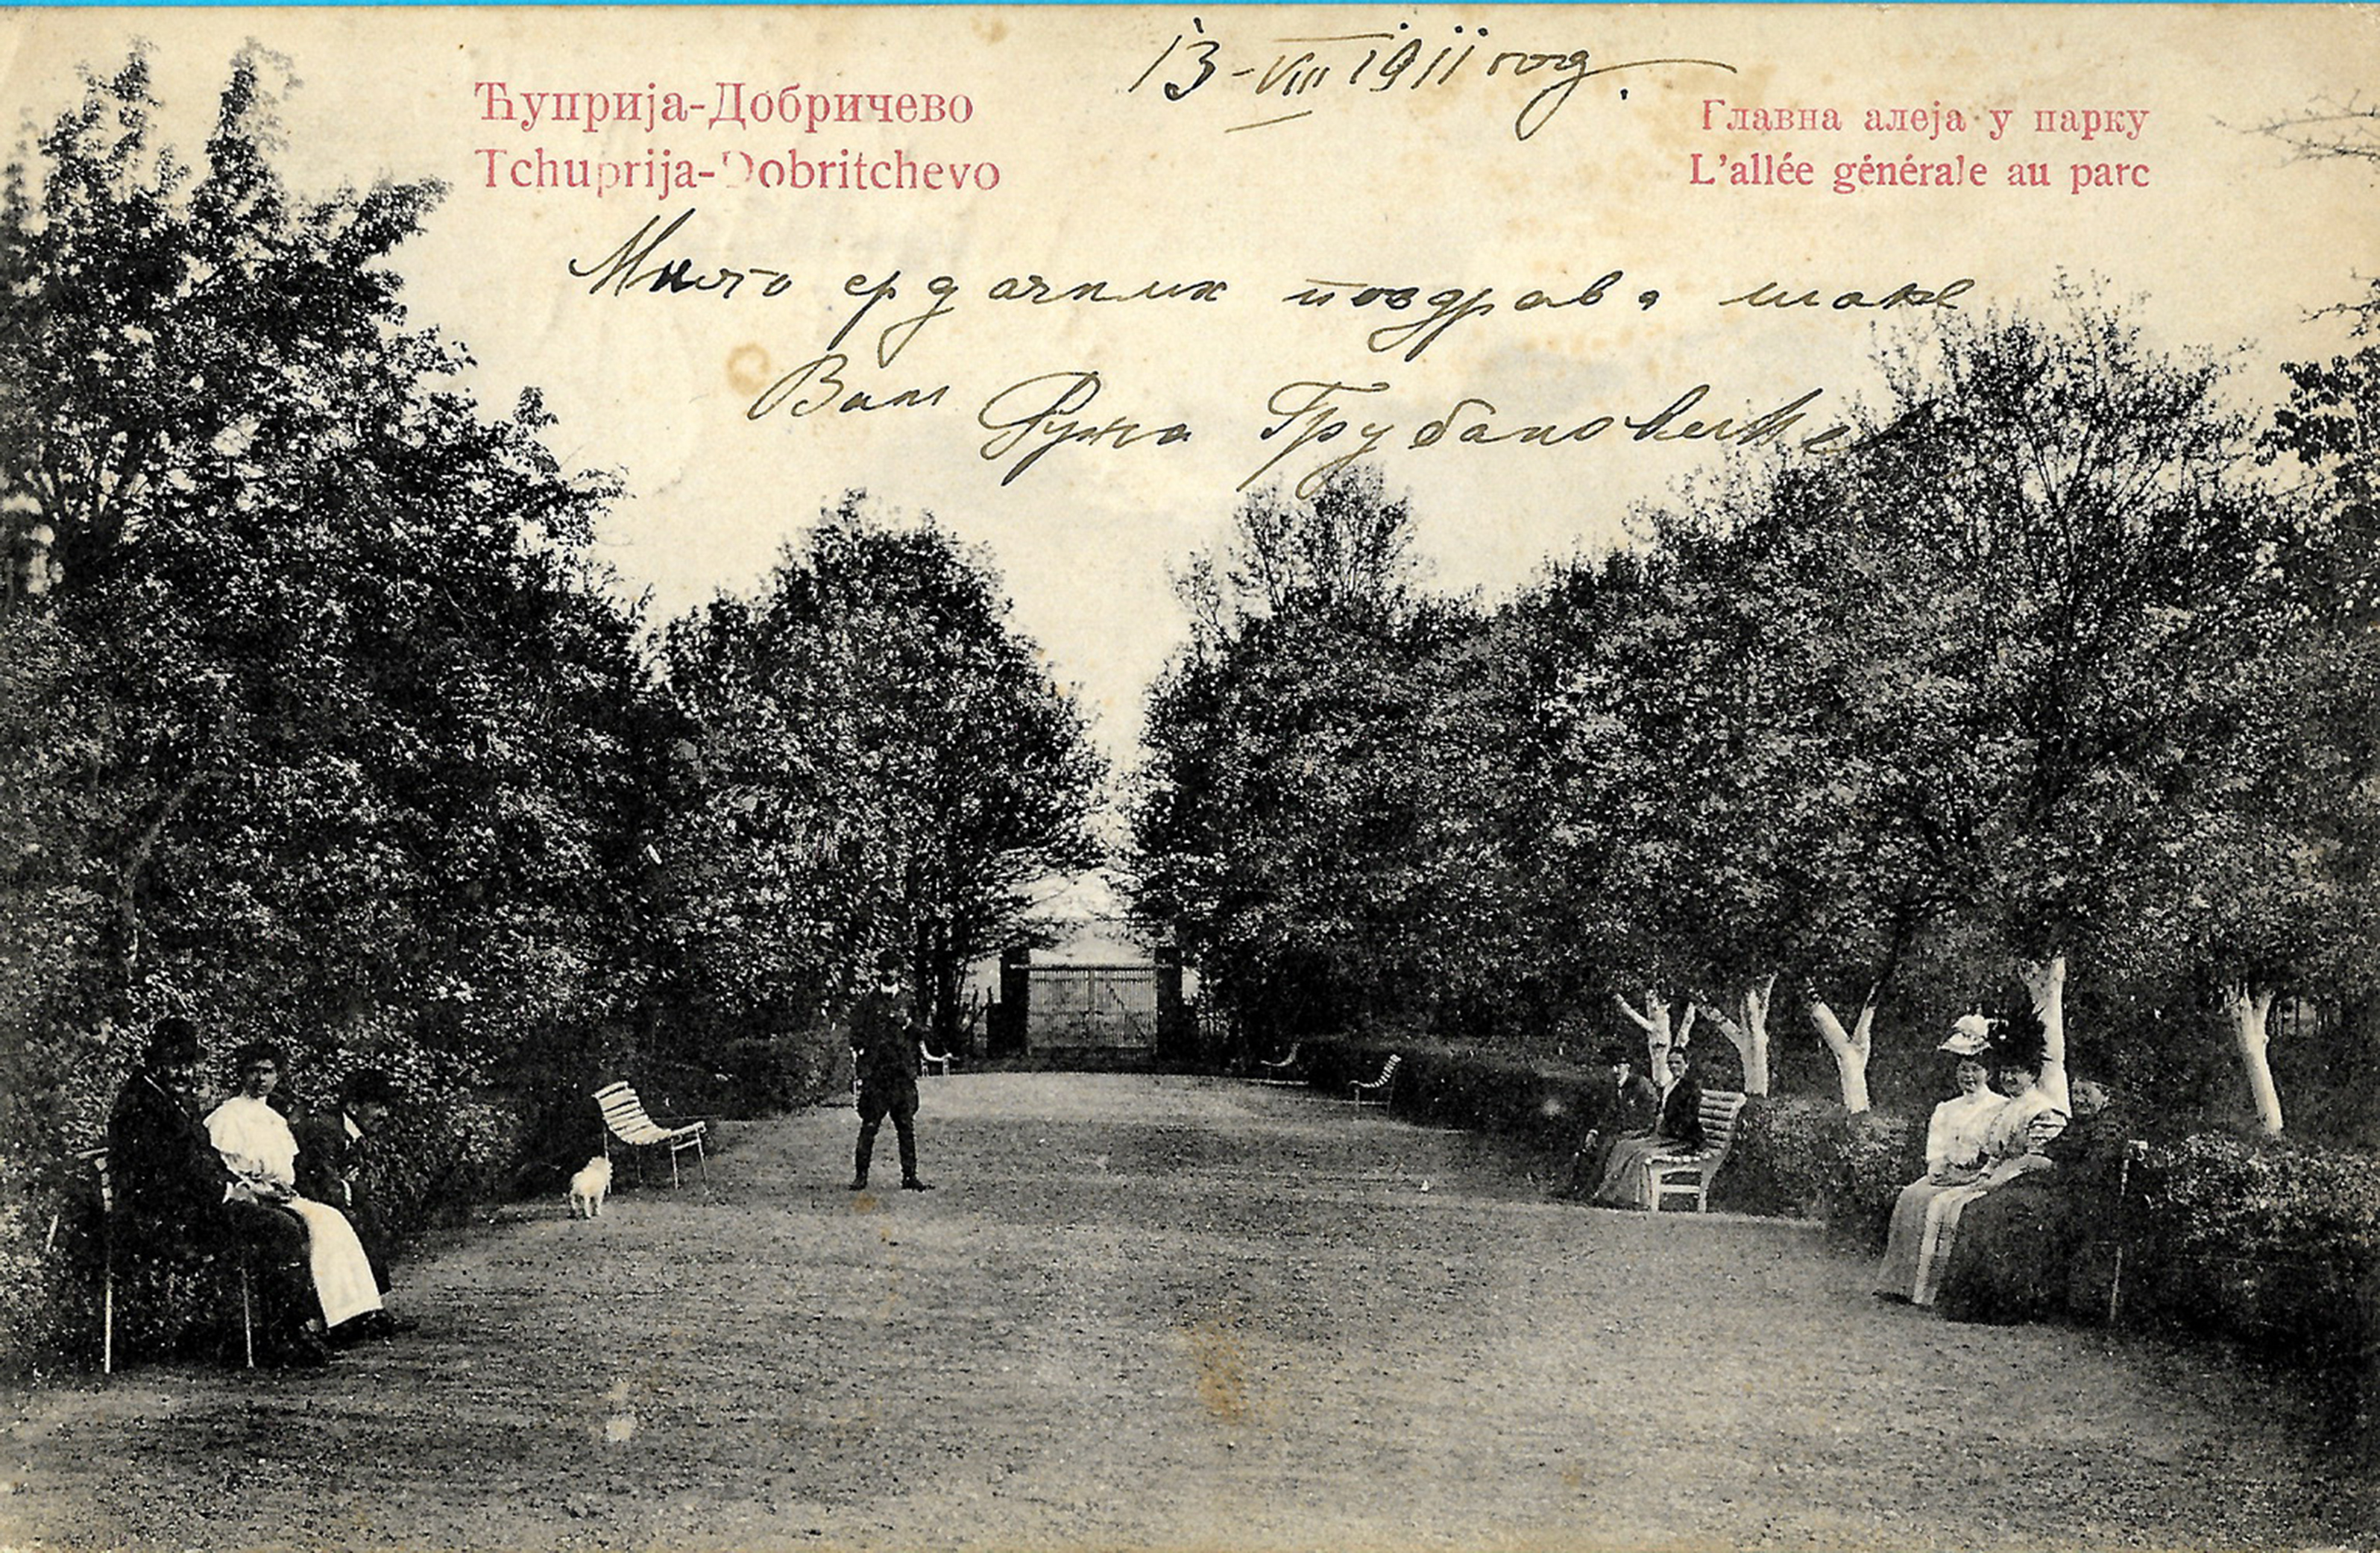 13-VIII 1911 год.
Ћуприја-Добричево
Tchuprija-Dobritchevo
Главна алеја у парку
L'allée générale au parc
Много срдачних поздрава шаље
Вам Ружа Грубановић